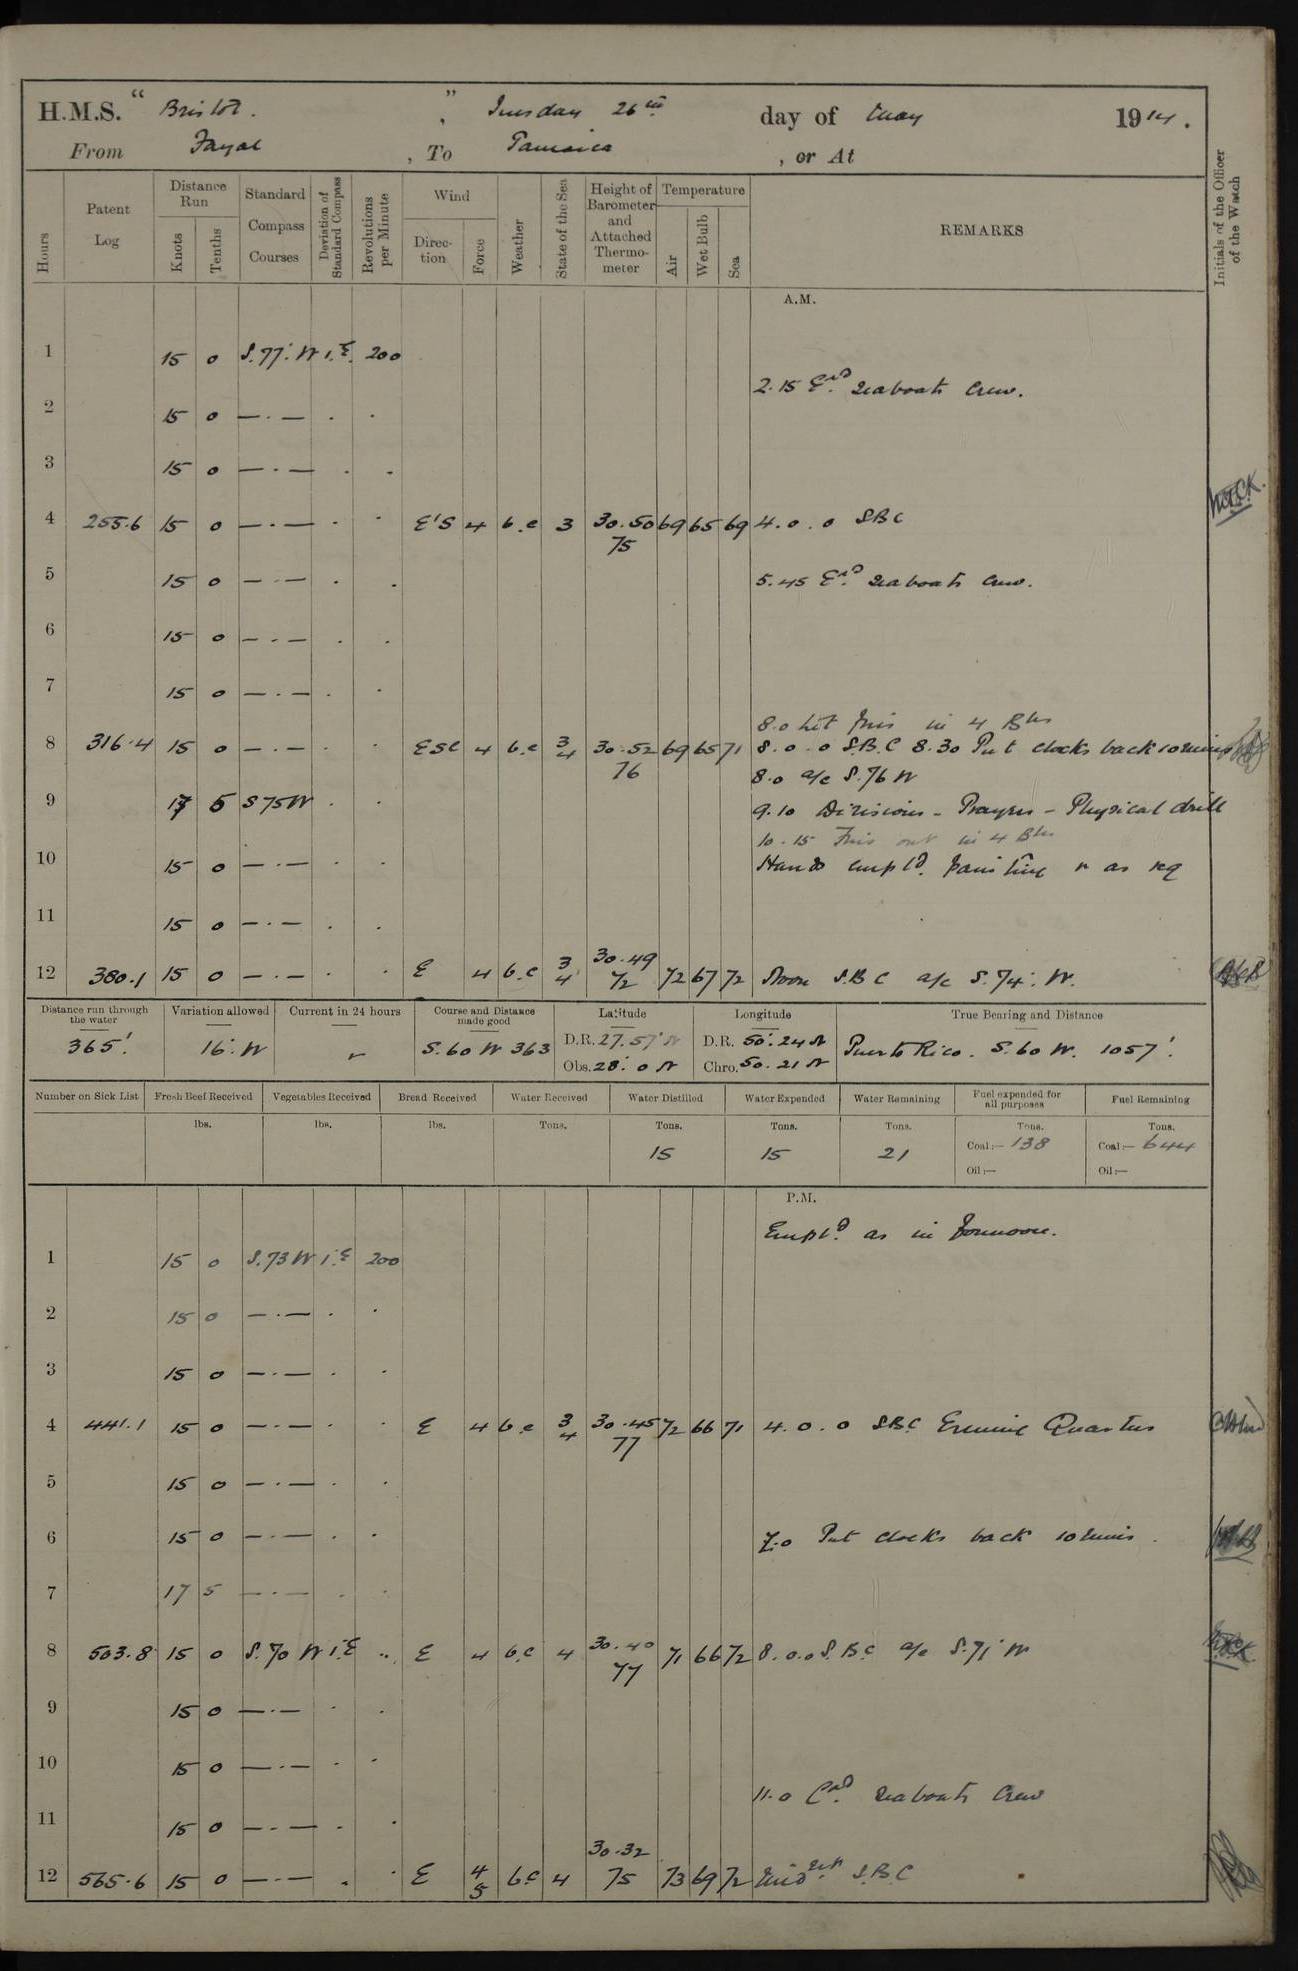 H.M.S. " Bristol. " , Tuesday 26th day of May 1914.
From Fayal , To Jamaica , or At
Hours Patent Log Distance Run Knots Tenths Standard Compass Courses Deviation of Standard Compass Revolutions per Minute Wind Direction Force Weather State of the Sea Height of Barometer and Attached Thermometer Temperature Air Wet Bulb Sea REMARKS Initials of the Officer of the Watch
A.M.
1 15 0 S.77°.W 1.E. 200
2.15 Exd. Seaboats Crew.
2 15 0 — . — . .
3 15 0 — . — . .
4 255.6 15 0 — . — . . E'S 4 b.c 3 30.50 69 65 69 4.0.0 SBC
75
5 15 0 — . — . . 5.45 Exd. Seaboats Crew.
6 15 0 — . — . .
7 15 0 — . — . .
8.0 Lit fires in 4 Blrs
8 316.4 15 0 — . — . . ESE 4 b.c 3/4 30.52 69 65 71 8.0.0 S.B.C 8.30 Put clocks back 10 mins
76 8.0 a/c S.76 W
9 17 5 S 75 W . . 9.10 Divisions - Prayers - Physical drill
10.15 Fires out in 4 Blrs
10 15 0 — . — . . Hands empld. painting & as req
11 15 0 — . — . .
12 380.1 15 0 — . — . . E 4 b.c 3/4 30.49 72 67 72 Noon S.B.C a/c S.74°. W.
72
Distance run through the water Variation allowed Current in 24 hours Course and Distance made good Latitude Longitude True Bearing and Distance
365'. 16°. W S.60 W 363 D.R. 27.57' N D.R. 50°.24 W Puerto Rico. S.60 W. 1057'.
Obs. 28°. 0 N Chro. 50.21 W
Number on Sick List Fresh Beef Received Vegetables Received Bread Received Water Received Water Distilled Water Expended Water Remaining Fuel expended for all purposes Fuel Remaining
lbs. lbs. lbs. Tons. Tons. Tons. Tons. Tons. Tons.
15 15 21 Coal:— 138 Coal:— 644
Oil:— Oil:—
P.M.
Empld. as in forenoon.
1 15 0 S.73 W 1.E 200
2 15 0 — . — . .
3 15 0 — . — . .
4 441.1 15 0 — . — . . E 4 b.c 3/4 30.45 72 66 71 4.0.0 SBC Evening Quarters
77
5 15 0 — . — . .
6 15 0 — . — . . 7.0 Put clocks back 10 mins.
7 17 5 — . — . .
8 503.8 15 0 S.70 W 1.E .. E 4 b.c 4 30.40 71 66 72 8.0.0 S.B.C a/c S.71 W
77
9 15 0 — . — . .
10 15 0 — . — . .
11.0 Exd. Seaboats Crew
11 15 0 — . — . .
12 565.6 15 0 — . — . . E 4/5 b.c 4 30.32 73 69 72 Midnt S.B.C
75